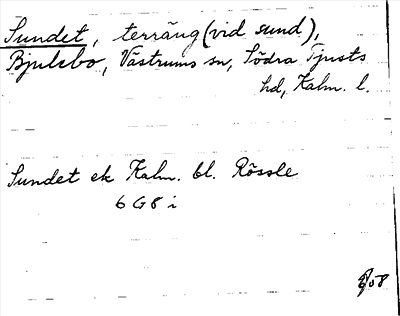 Sundet, terräng (vid sund),
Bjulebo, Västrums sn, Södra Tjusts
hd, Kalm. l.
Sundet ek Kalm. bl. Rössle
6 G 8 i